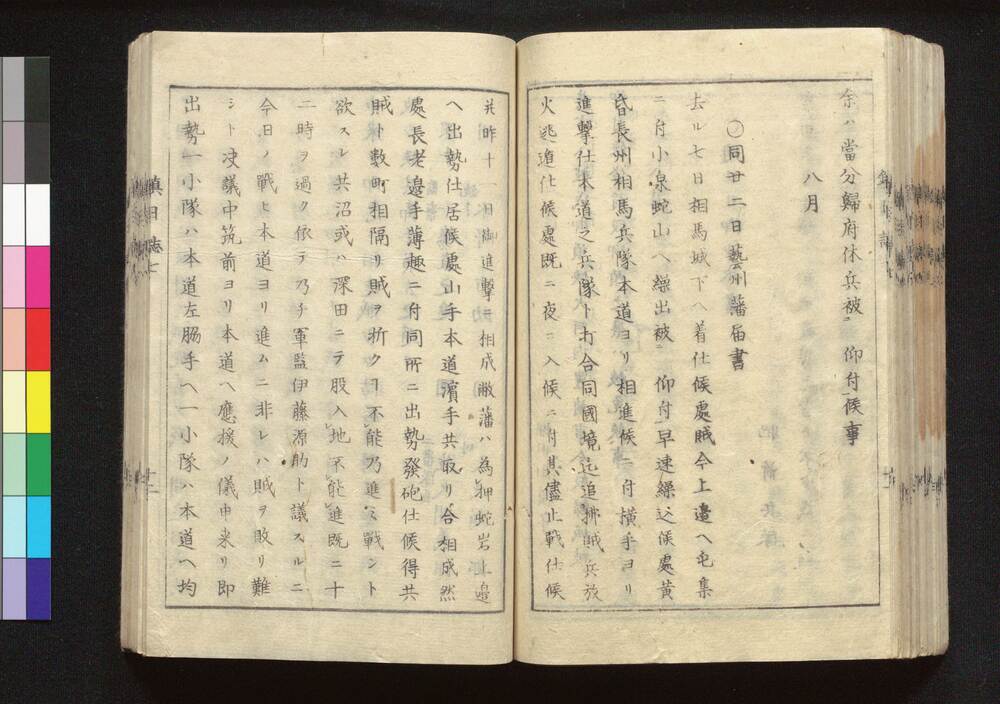 余ハ當分歸府休兵被 仰付候事
八月
〇同廿二日藝州藩届書
去ル七日相馬城下ヘ着仕候處賊今上邉ヘ屯集
ニ付小泉蛇山ヘ繰出被 仰付早速繰込候處黄
昏長州相馬兵隊本道ヨリ相進候ニ付横手ヨリ
進撃仕本道之兵隊ト打合同國境迄追拂賊兵放
火逃遁仕候處既ニ夜ニ入候ニ付其儘止戰仕候
并昨十一日御進撃ニ相成敝藩ハ為押蛇岩上邉
ヘ出勢仕居候處山手本道濱手共取リ合相成然
處長老邉手薄趣ニ付同所ニ出勢發砲仕候得共
賊ト數町相隔リ賊ヲ折クヿ不能乃進ンテ戰ント
欲スレ共沼或ハ深田ニテ股入地不能進既ニ十
二時ヲ過ク依テ乃チ軍監伊藤源助ト議スルニ
今日ノ戰ヒ本道ヨリ進ムニ非レハ賊ヲ敗リ難
シト决議中筑前ヨリ本道ヘ應援ノ儀申来リ即
出勢一小隊ハ本道左脇手ヘ一小隊ハ本道ヘ均
鎮日誌七